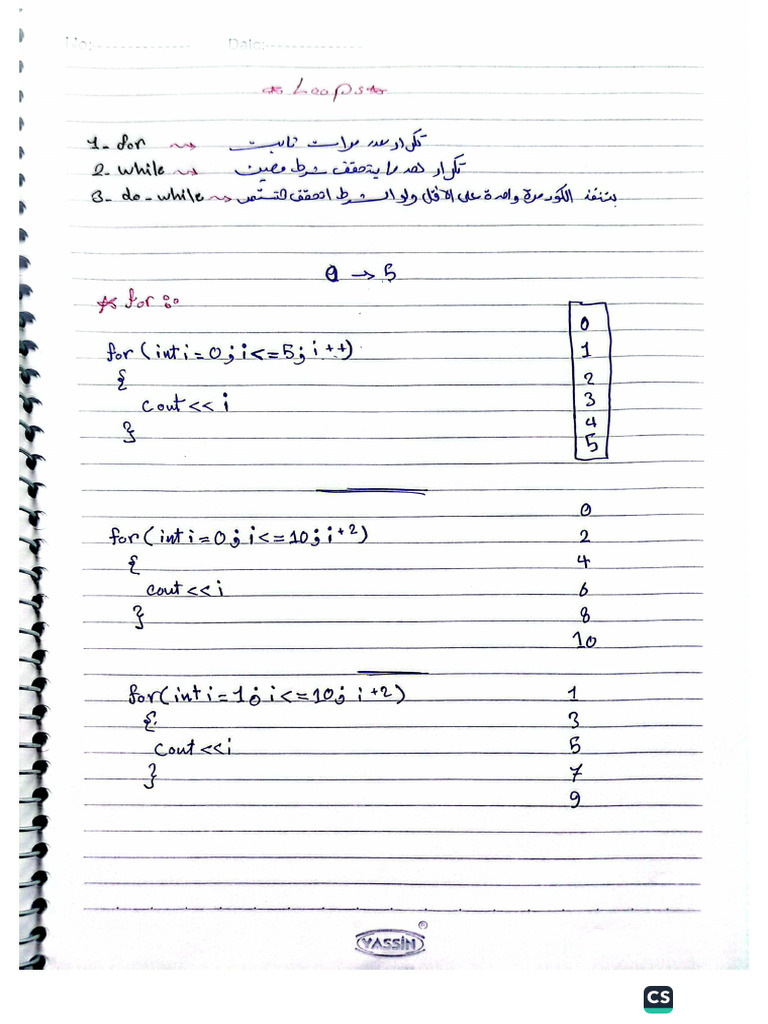 No:-------------- Date:--------------
* Loops *
1- for ⇝ تكرار عدد مرات ثابت
2- while ⇝ تكرار لحد ما يتحقق شرط معين
3- do-while ⇝ بتنفذ الكود مرة واحدة على الاقل ولو الشرط اتحقق
0 → 5
* for :
for(int i=0; i<=5; i++)
{
cout<<i
}
0
1
2
3
4
5
for(int i=0; i<=10; i+2)
{
cout<<i
}
0
2
4
6
8
10
for(int i=1; i<=10; i+2)
{
cout<<i
}
1
3
5
7
9
YASSIN®
CS